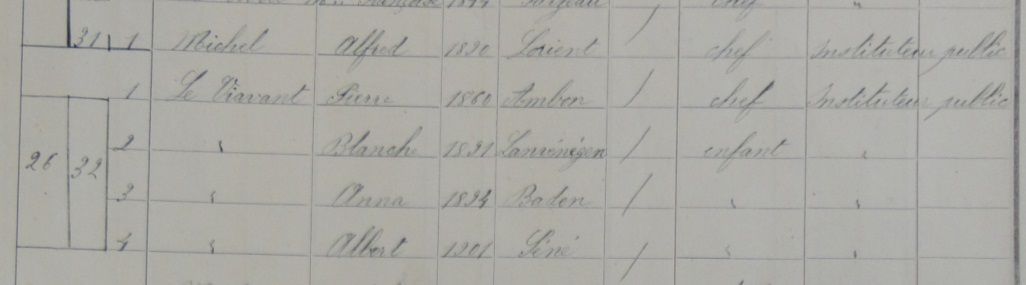 Française 1844 chef "
31 1 Michel Alfred 1890 Lorient / chef Instituteur public
1 Le Viavant Pierre 1860 Ambon / chef Instituteur public
26 32 2 " Blanche 1891 Lanvénégen / enfant "
3 " Anna 1894 Baden / " "
4 " Albert 1901 Séné / "